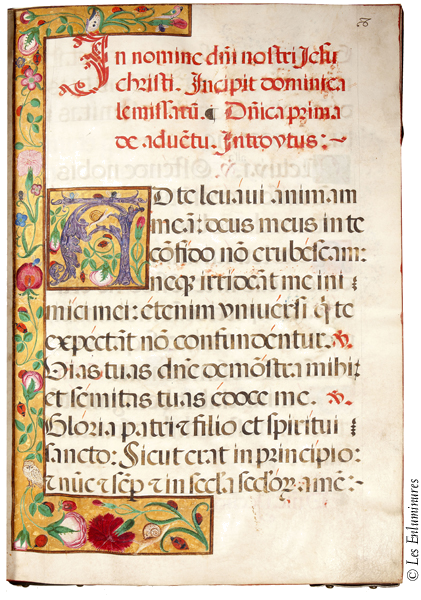 In nomine dñi nostri Jesu
christi. Incipit dominica
le missarũ. Dñica prima
de aduẽtu. Introytus:~
AD te leuaui animam
meã: deus meus in te
cõfido nõ erubescam:
neqʒ irrideant me ini
mici mei: etenim vniuersi q̃ te
expectant nõ confundentur. ꝟ.
Uias tuas dñe demõstra mihi:
et semitas tuas edoce me. ꝟ.
Gloria patri ⁊ filio et spiritui
sancto: Sicut erat in principio:
⁊ nũc ⁊ sẽp ⁊ in secła secłoꝝ. amẽ:~
© Les Enluminures